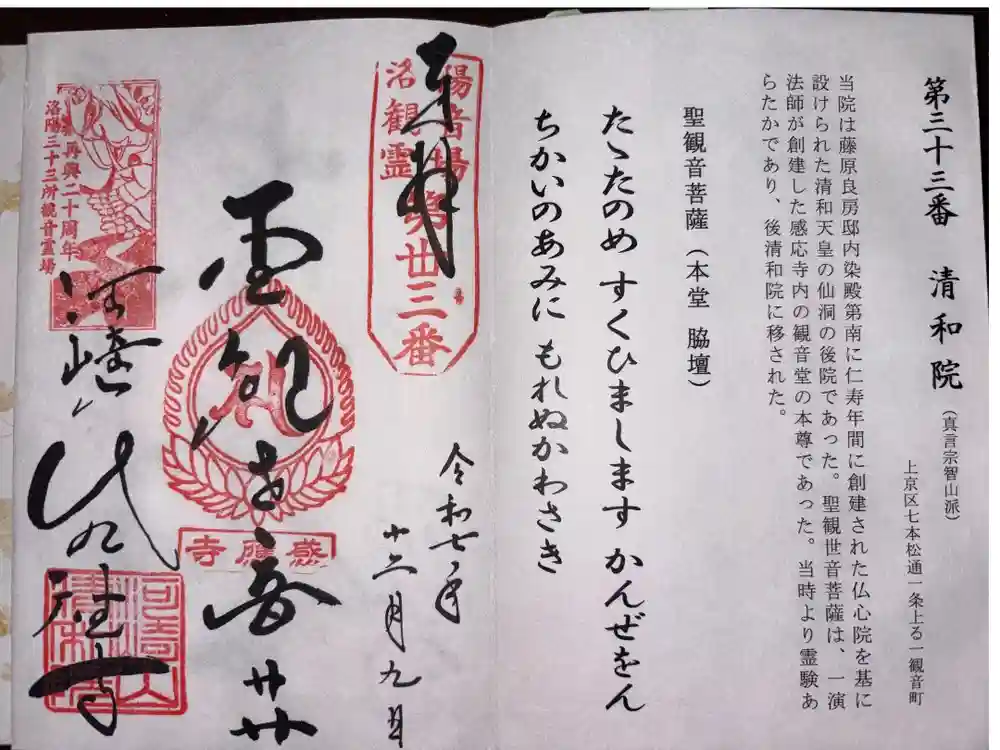 第三十三番 清和院
(真言宗智山派)
上京区七本松通一条上る一観音町
当院は藤原良房邸内染殿第南に仁寿年間に創建された仏心院を基に
設けられた清和天皇の仙洞の後院であった。聖観世音菩薩は、一演
法師が創建した感応寺内の観音堂の本尊であった。当時より霊験あ
らたかであり、後清和院に移された。
聖観音菩薩(本堂 脇壇)
たゝたのめ すくひまします かんぜをん
ちかいのあみに もれぬかわさき
奉拝
洛陽
観音
霊場
第丗三番
令和七年
十二月九日
感應寺
再興二十周年
洛陽三十三所観音霊場
河崎